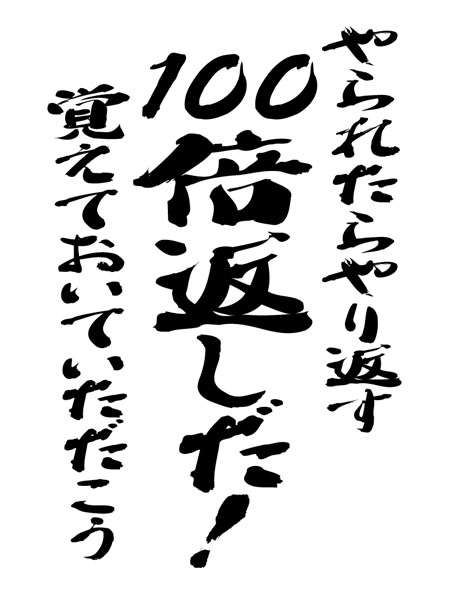 やられたらやり返す
100倍返しだ!
覚えておいていただこう